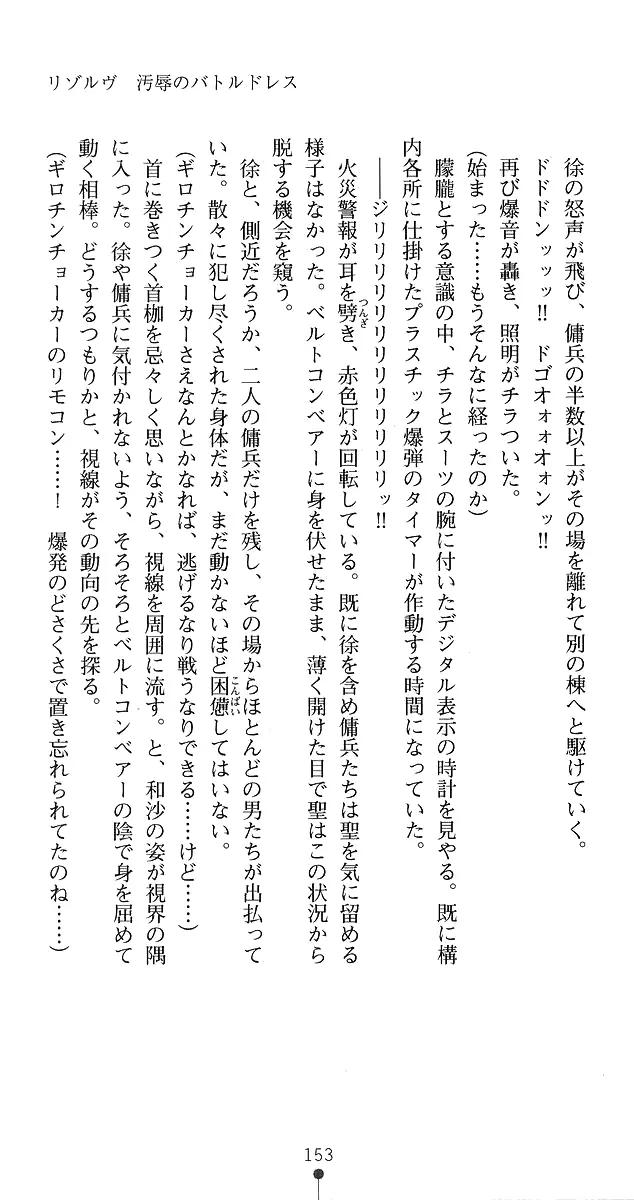 リゾルヴ　汚辱のバトルドレス
徐の怒声が飛び、傭兵の半数以上がその場を離れて別の棟へと駆けていく。
ドドドンッッッ!!　ドゴオォォオォンッ!!
再び爆音が轟き、照明がチラついた。
(始まった……もうそんなに経ったのか)
朦朧とする意識の中、チラとスーツの腕に付いたデジタル表示の時計を見やる。既に構
内各所に仕掛けたプラスチック爆弾のタイマーが作動する時間になっていた。
――ジリリリリリリリリリリリリッ!!
火災警報が耳を劈き、赤色灯が回転している。既に徐を含め傭兵たちは聖を気に留める
様子はなかった。ベルトコンベアーに身を伏せたまま、薄く開けた目で聖はこの状況から
脱する機会を窺う。
徐と、側近だろうか、二人の傭兵だけを残し、その場からほとんどの男たちが出払って
いた。散々に犯し尽くされた身体だが、まだ動かないほど困憊してはいない。
(ギロチンチョーカーさえなんとかなれば、逃げるなり戦うなりできる……けど……)
首に巻きつく首枷を忌々しく思いながら、視線を周囲に流す。と、和沙の姿が視界の隅
に入った。徐や傭兵に気付かれないよう、そろそろとベルトコンベアーの陰で身を屈めて
動く相棒。どうするつもりかと、視線がその動向の先を探る。
(ギロチンチョーカーのリモコン……！　爆発のどさくさで置き忘れられてたのね……)
つんざ
こんぱい
153